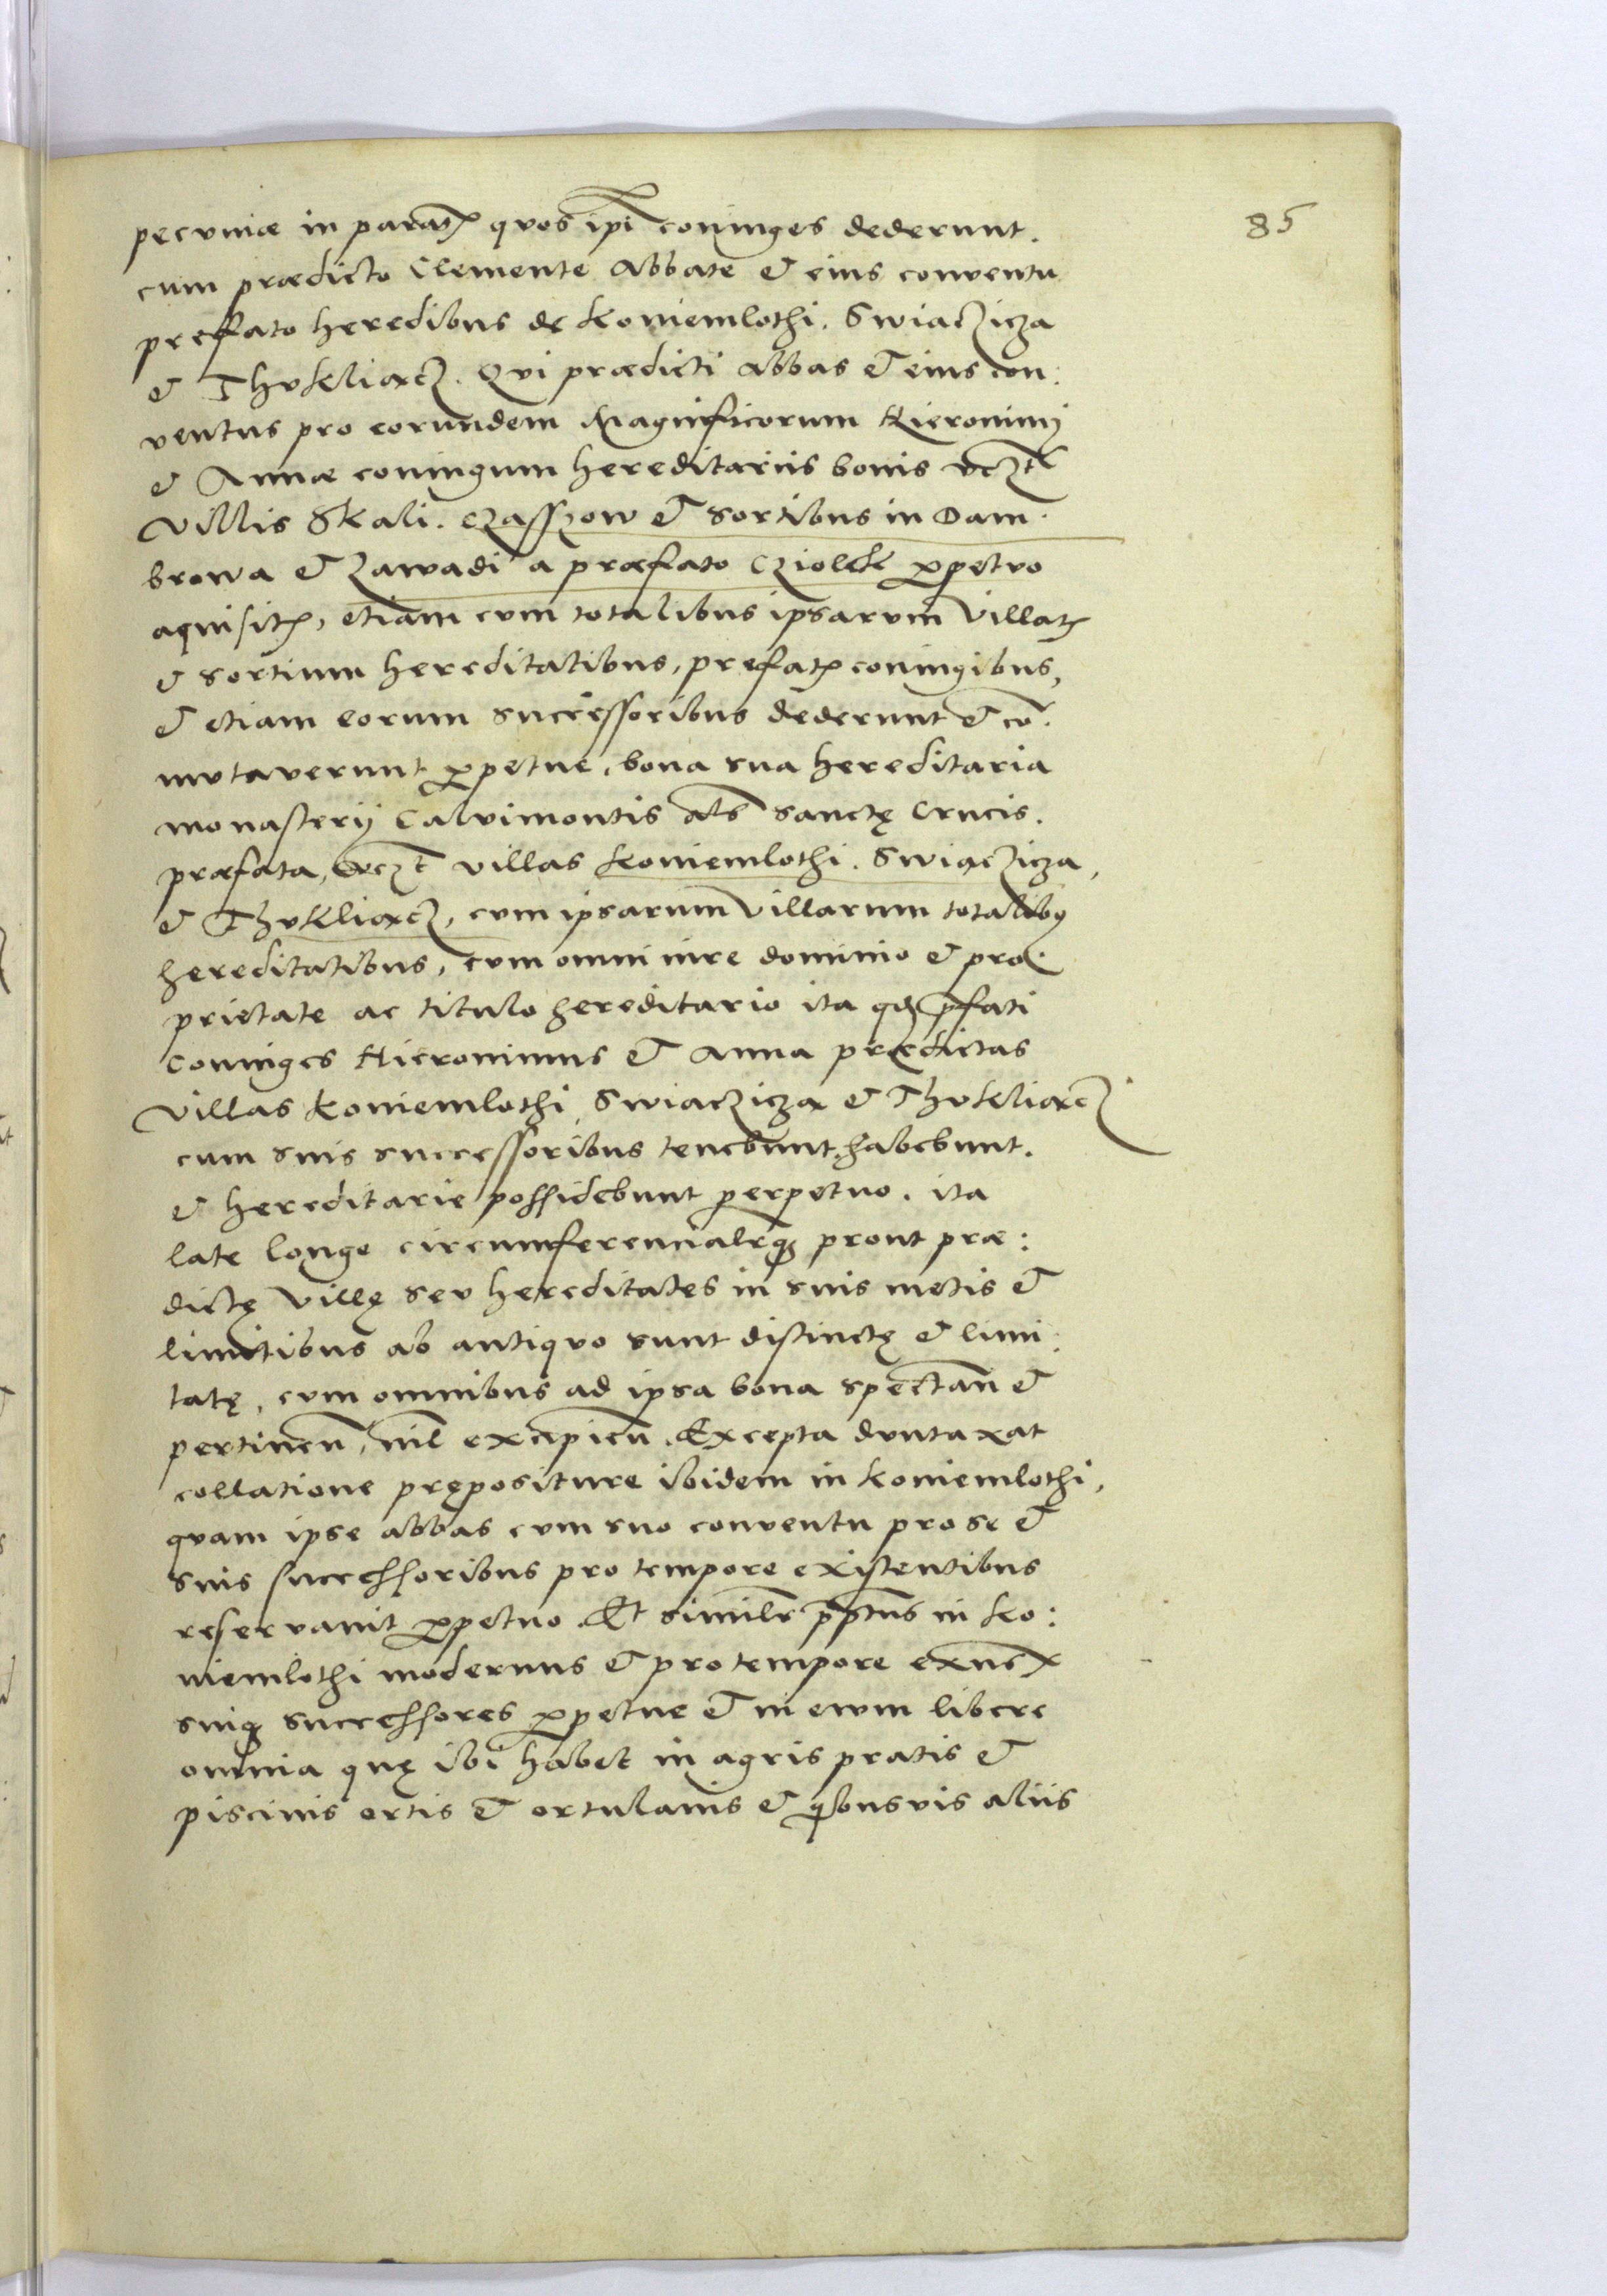 85
pecuniæ in paratꝭ quos ip̄i coniuges dederunt.
cum prædicto Clemente Abbate & eius conventu
prefato heredibus de koniemlothi. Swiaczicza
& Thukliacz. Qui prædicti Abbas & eius con:
ventus pro eorundem Magnificorum Hieronimj
& Annæ coniugum hereditariis bonis vcꝫt
Villis Skali. Czasszow & sortibus in Dam:
browa & Zawadi a præfato Cziolek ꝑpetuo
aquisitꝭ, etiam cum totalibus ipsarum Villaꝝ
& sortium hereditatibus, prefatꝭ coniugibus,
& etiam eorum successoribus dederunt & cō:
mutaverunt ꝑpetue, bona sua hereditaria
monasterij Calvimontis als̄ sanctę Crucis.
præfata, vcꝫt villas koniemlothi. Swiaczicza,
& Thukliacz, cum ipsarum Villarum totalibꝰ
hereditatibus, cum omni iure dominio & pro:
prietate ac titulo hereditario ita qđ p̄fati
Coniuges Hieronimus & Anna prædictas
Villas koniemlothi Swiaczicza & Thukliacz
cum suis successoribus tenebunt. habebunt.
& hereditarie possidebunt perpetuo. ita
late longe circumferencialrꝗꝫ prout præ:
dictę Villę seu hereditates in suis metis &
limitibus ab antiquo sunt distinctę & limi:
tatę, cum omnibus ad ipsa bona spectan̄ &
pertinen̄, nil excipien̄. Excepta duntaxat
collatione prępositure ibidem in koniemlothi,
quam ipse abbas cum suo conventu pro se &
suis successoribus pro tempore existentibus
reservavit ꝑpetuo. Et similr̄ p̄p̄tus in ko:
niemlothi modernus & pro tempore exn̄s
suiqꝫ successores ꝑpetue & in evum libere
omnia quę ibi habet in agris pratis &
piscinis ortis & ortulanis & qͥbusvis aliis